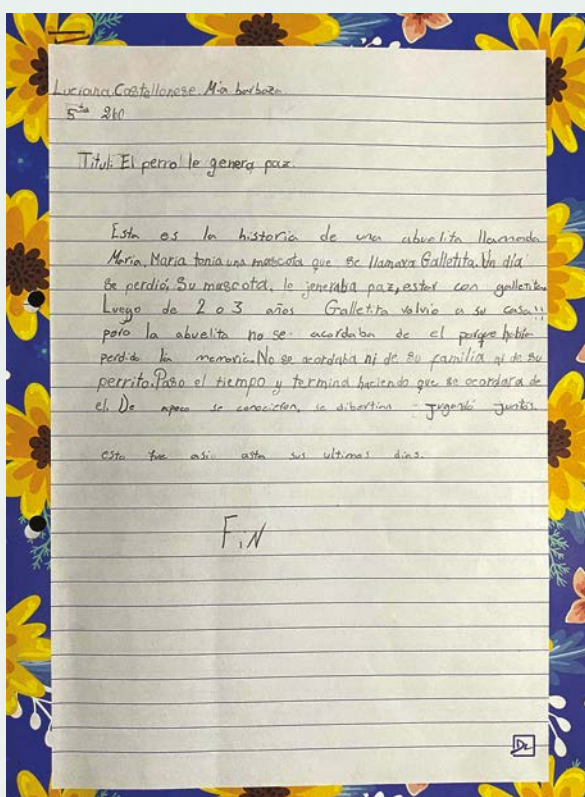 Luciana Castellonese. Mia barboza
5ta 2do
Titul: El perro le genera paz.
Esta es la historia de una abuelita llamada
Maria. Maria tonia una mascota que se llamava Galletita. Un día
se perdió. Su mascota, le jeneraba paz, estar con galletita
Luego de 2 o 3 años Galletita volvio a su casa!!
pero la abuelita no se acordaba de el porque había
perdido la memoria. No se acordaba ni de su familia ni de su
perrito. Paso el tiempo y termina haciendo que se acordara de
el. De apoco se conocieron, se dibertian jugando juntos.
esto fue asi asta sus ultimos dias.
FiN